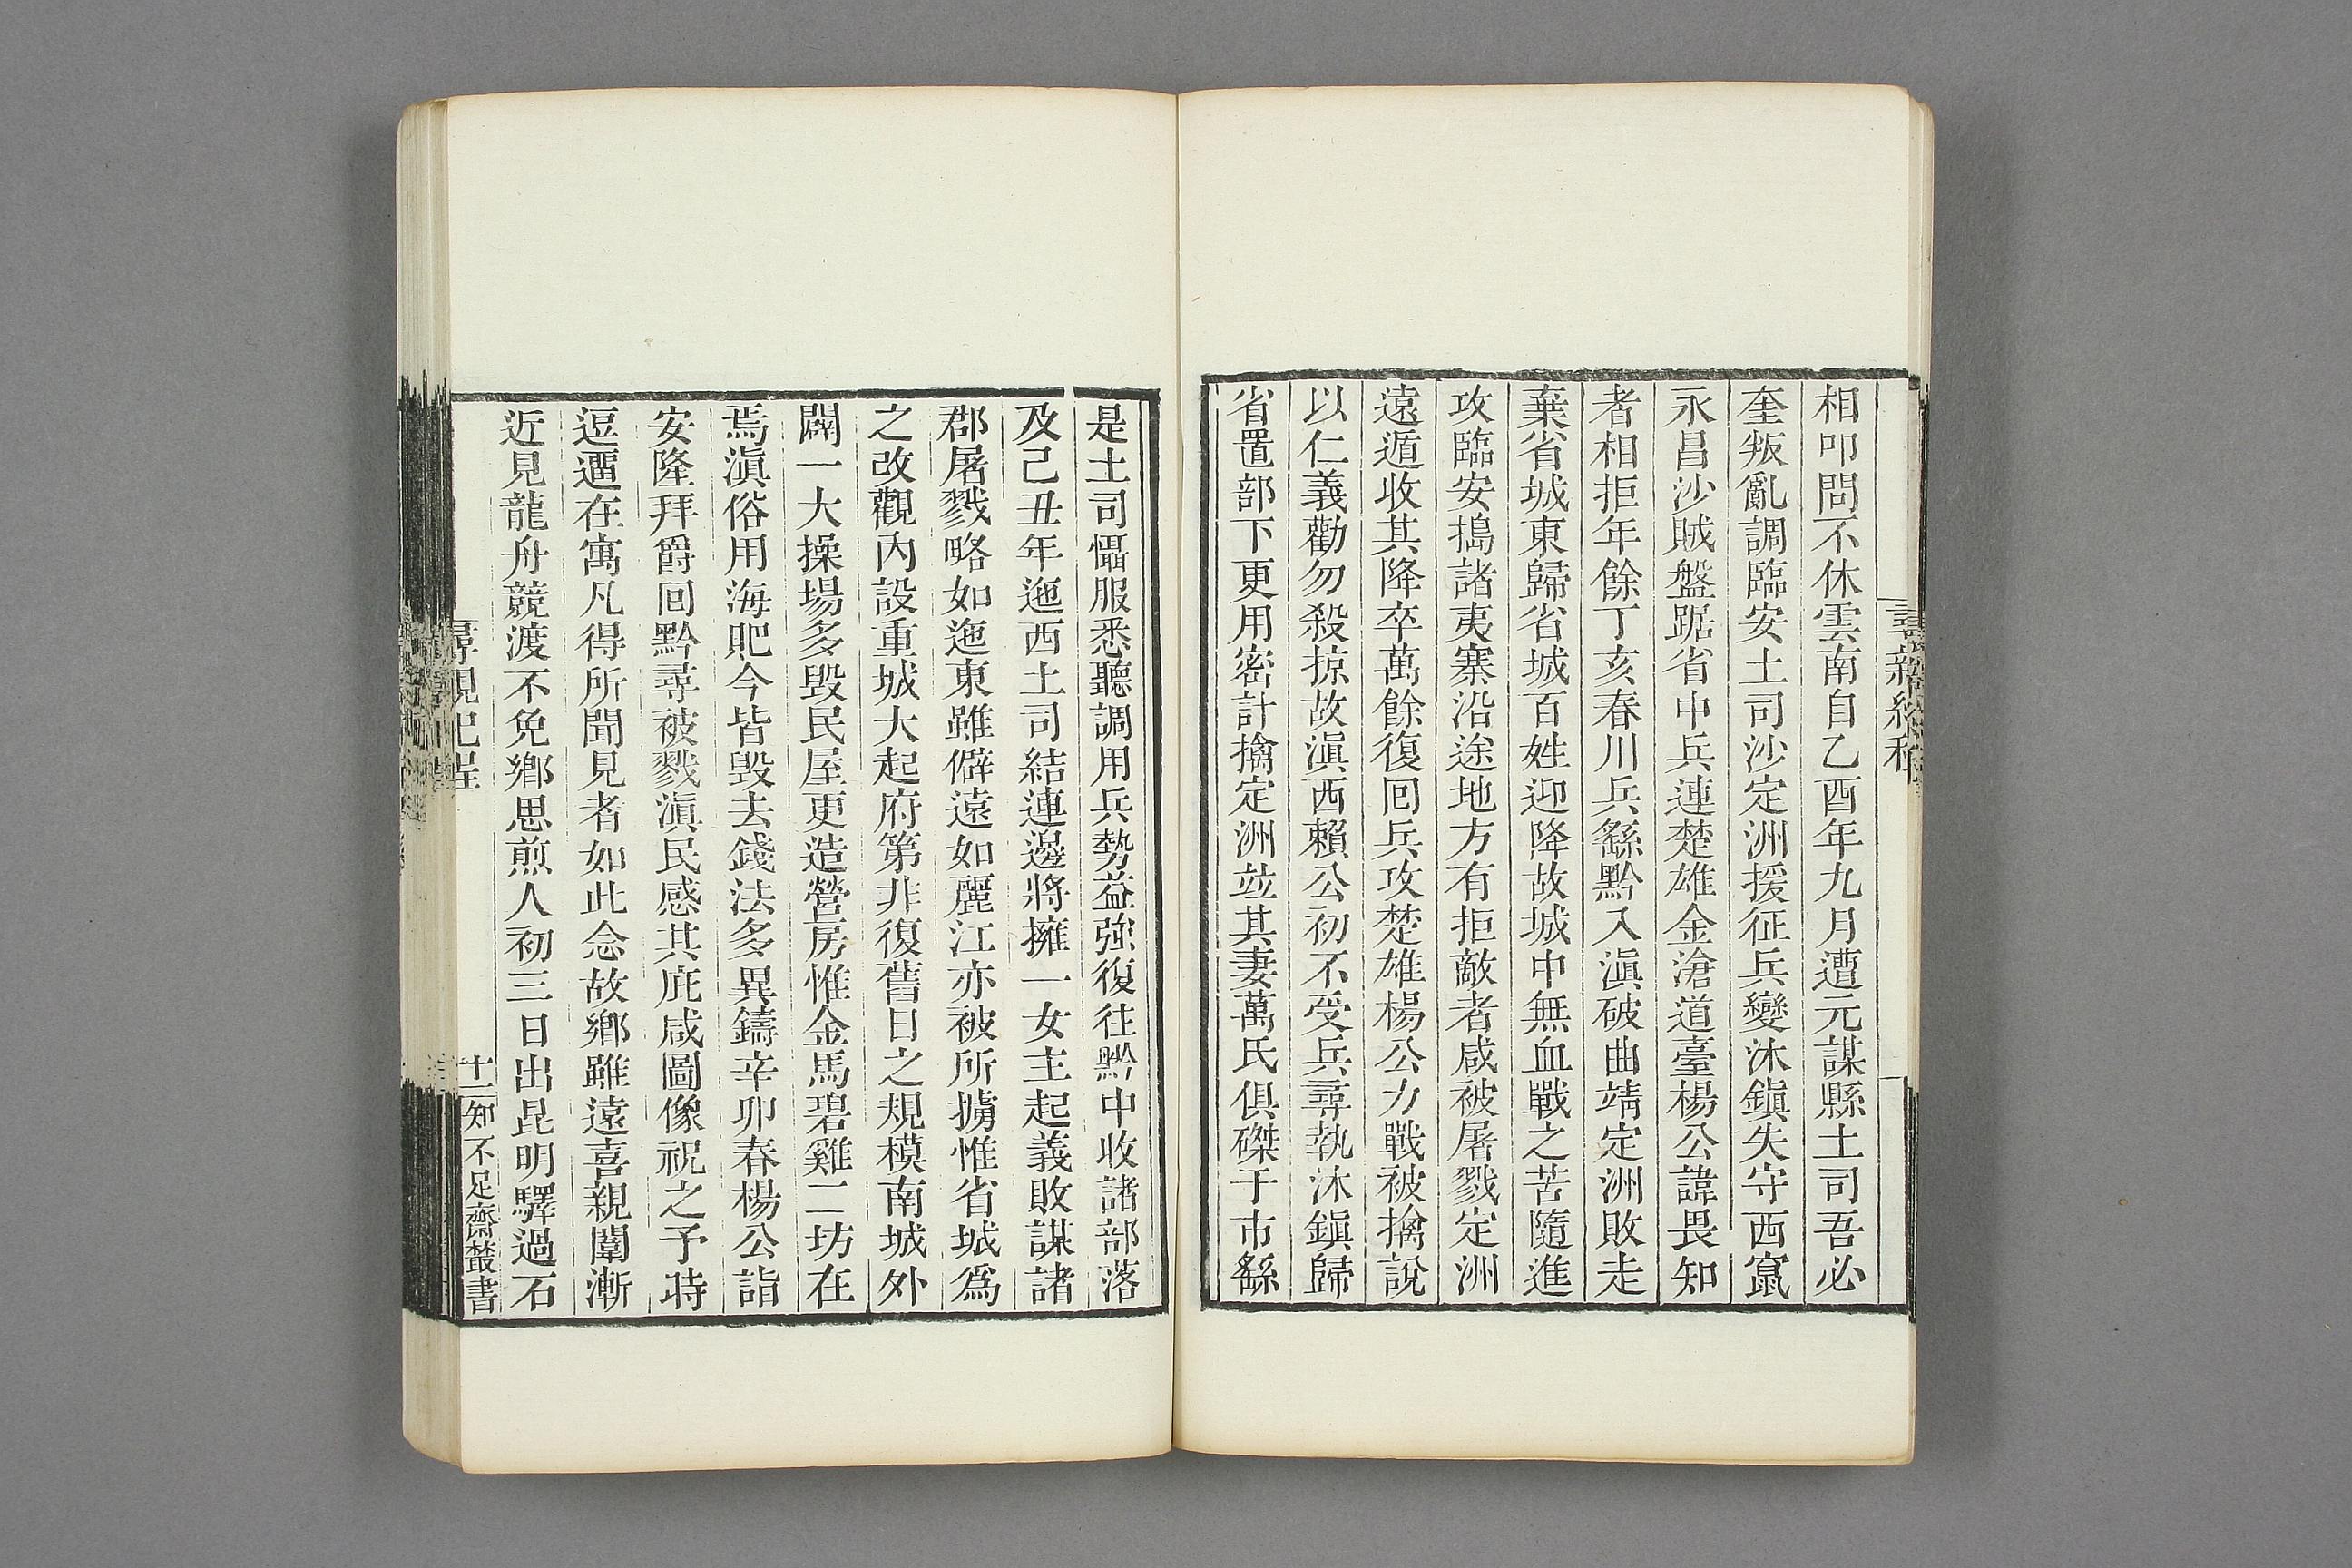 相叩問不休雲南自乙酉年九月遭元謀縣土司吾必
奎叛亂調臨安土司沙定洲援征兵變沐鎭失守西竄
永昌沙賊盤踞省中兵連楚雄金滄道臺楊公諱畏知
者相拒年餘丁亥春川兵繇黔入滇破曲靖定洲敗走
棄省城東歸省城百姓迎降故城中無血戰之苦隨進
攻臨安搗諸夷寨沿途地方有拒敵者咸被屠戮定洲
遠遁收其降卒萬餘復回兵攻楚雄楊公力戰被擒說
以仁義勸勿殺掠故滇西賴公初不受兵尋執沐鎭歸
省置部下更用密計擒定洲竝其妻萬氏俱磔于市繇
是土司懾服悉聽調用兵勢益強復往黔中收諸部落
及己丑年迤西土司結連邊將擁一女主起義敗謀諸
郡屠戮略如迤東雖僻遠如麗江亦被所擄惟省城爲
之改觀內設重城大起府第非復舊日之規模南城外
闢一大操場多毀民屋更造營房惟金馬碧雞二坊在
焉滇俗用海𧵅今皆毀去錢法多異鑄辛卯春楊公詣
安隆拜爵回黔尋被戮滇民感其庇咸圖像祝之予時
逗遛在寓凡得所聞見者如此念故鄉雖遠喜親闈漸
近見龍舟競渡不免鄉思煎人初三日出昆明驛過石
尋親紀程
十一
知不足齋叢書